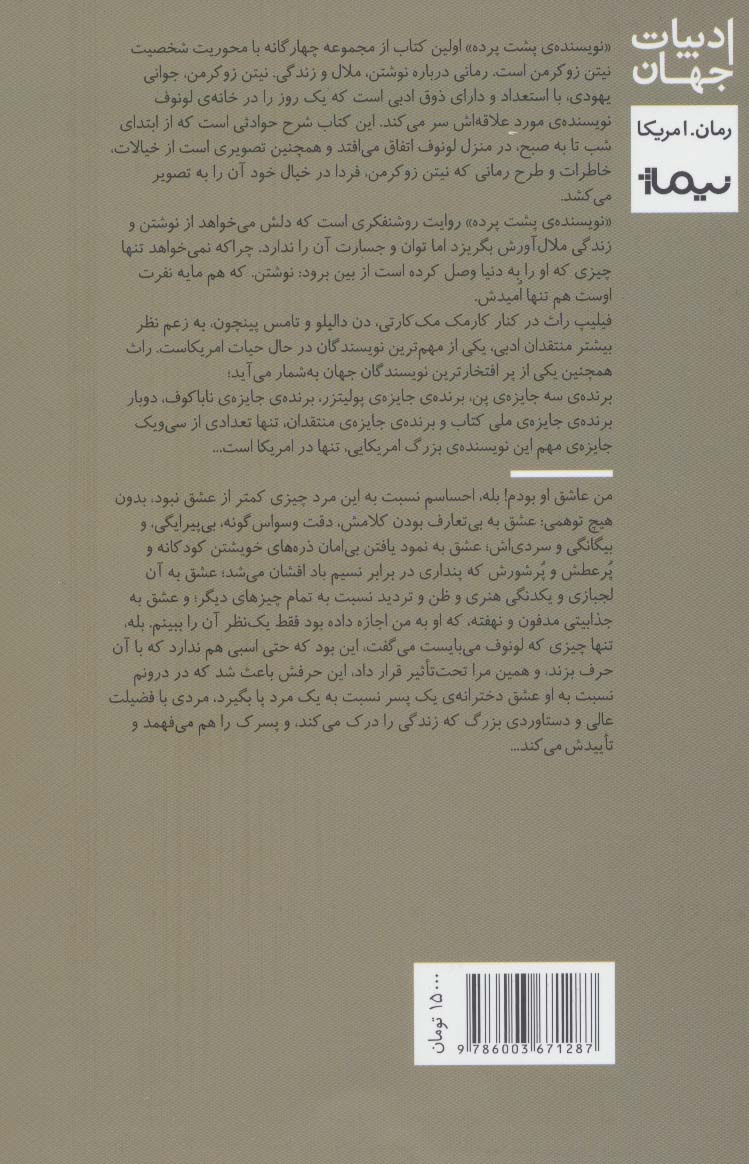 ادبیات
جهان
رمان. امریکا
نیماژ
«نویسنده‌ی پشت پرده» اولین کتاب از مجموعه چهارگانه با محوریت شخصیت
نیتن زوکرمن است. رمانی درباره نوشتن، ملال و زندگی. نیتن زوکرمن، جوانی
یهودی، با استعداد و دارای ذوق ادبی است که یک روز را در خانه‌ی لونوف
نویسنده‌ی مورد علاقه‌اش سر می‌کند. این کتاب شرح حوادثی است که از ابتدای
شب تا به صبح، در منزل لونوف اتفاق می‌افتد و همچنین تصویری است از خیالات،
خاطرات و طرح رمانی که نیتن زوکرمن، فردا در خیال خود آن را به تصویر
می‌کشد.
«نویسنده‌ی پشت پرده» روایت روشنفکری است که دلش می‌خواهد از نوشتن و
زندگی ملال‌آورش بگریزد اما توان و جسارت آن را ندارد. چراکه نمی‌خواهد تنها
چیزی که او را به دنیا وصل کرده است از بین برود: نوشتن. که هم مایه نفرت
اوست هم تنها اُمیدش.
فیلیپ راث در کنار کارمک مک‌کارتی، دن دالیلو و تامس پینچون، به زعم نظر
بیشتر منتقدان ادبی، یکی از مهم‌ترین نویسندگان در حال حیات امریکاست. راث
همچنین یکی از پر افتخارترین نویسندگان جهان به‌شمار می‌آید؛
برنده‌ی سه جایزه‌ی پن، برنده‌ی جایزه‌ی پولیتزر، برنده‌ی جایزه‌ی ناباکوف، دوبار
برنده‌ی جایزه‌ی ملی کتاب و برنده‌ی جایزه‌ی منتقدان، تنها تعدادی از سی‌ویک
جایزه‌ی مهم این نویسنده‌ی بزرگ امریکایی، تنها در امریکا است...
من عاشق او بودم! بله، احساسم نسبت به این مرد چیزی کمتر از عشق نبود، بدون
هیچ توهمی: عشق به بی‌تعارف بودن کلامش، دقت وسواس‌گونه، بی‌پیرایگی، و
بیگانگی و سردی‌اش؛ عشق به نمود یافتن بی‌امان ذره‌های خویشتن کودکانه و
پُرعطش و پُرشورش که پنداری در برابر نسیم باد افشان می‌شد؛ عشق به آن
لجبازی و یکدنگی هنری و ظن و تردید نسبت به تمام چیزهای دیگر؛ و عشق به
جذابیتی مدفون و نهفته، که او به من اجازه داده بود فقط یک‌نظر آن را ببینم. بله،
تنها چیزی که لونوف می‌بایست می‌گفت، این بود که حتی اسبی هم ندارد که با آن
حرف بزند، و همین مرا تحت‌تأثیر قرار داد، این حرفش باعث شد که در درونم
نسبت به او عشق دخترانه‌ی یک پسر نسبت به یک مرد پا بگیرد، مردی با فضیلت
عالی و دستاوردی بزرگ که زندگی را درک می‌کند، و پسرک را هم می‌فهمد و
تأییدش می‌کند...
۱۵۰۰۰ تومان
9 786003 671287